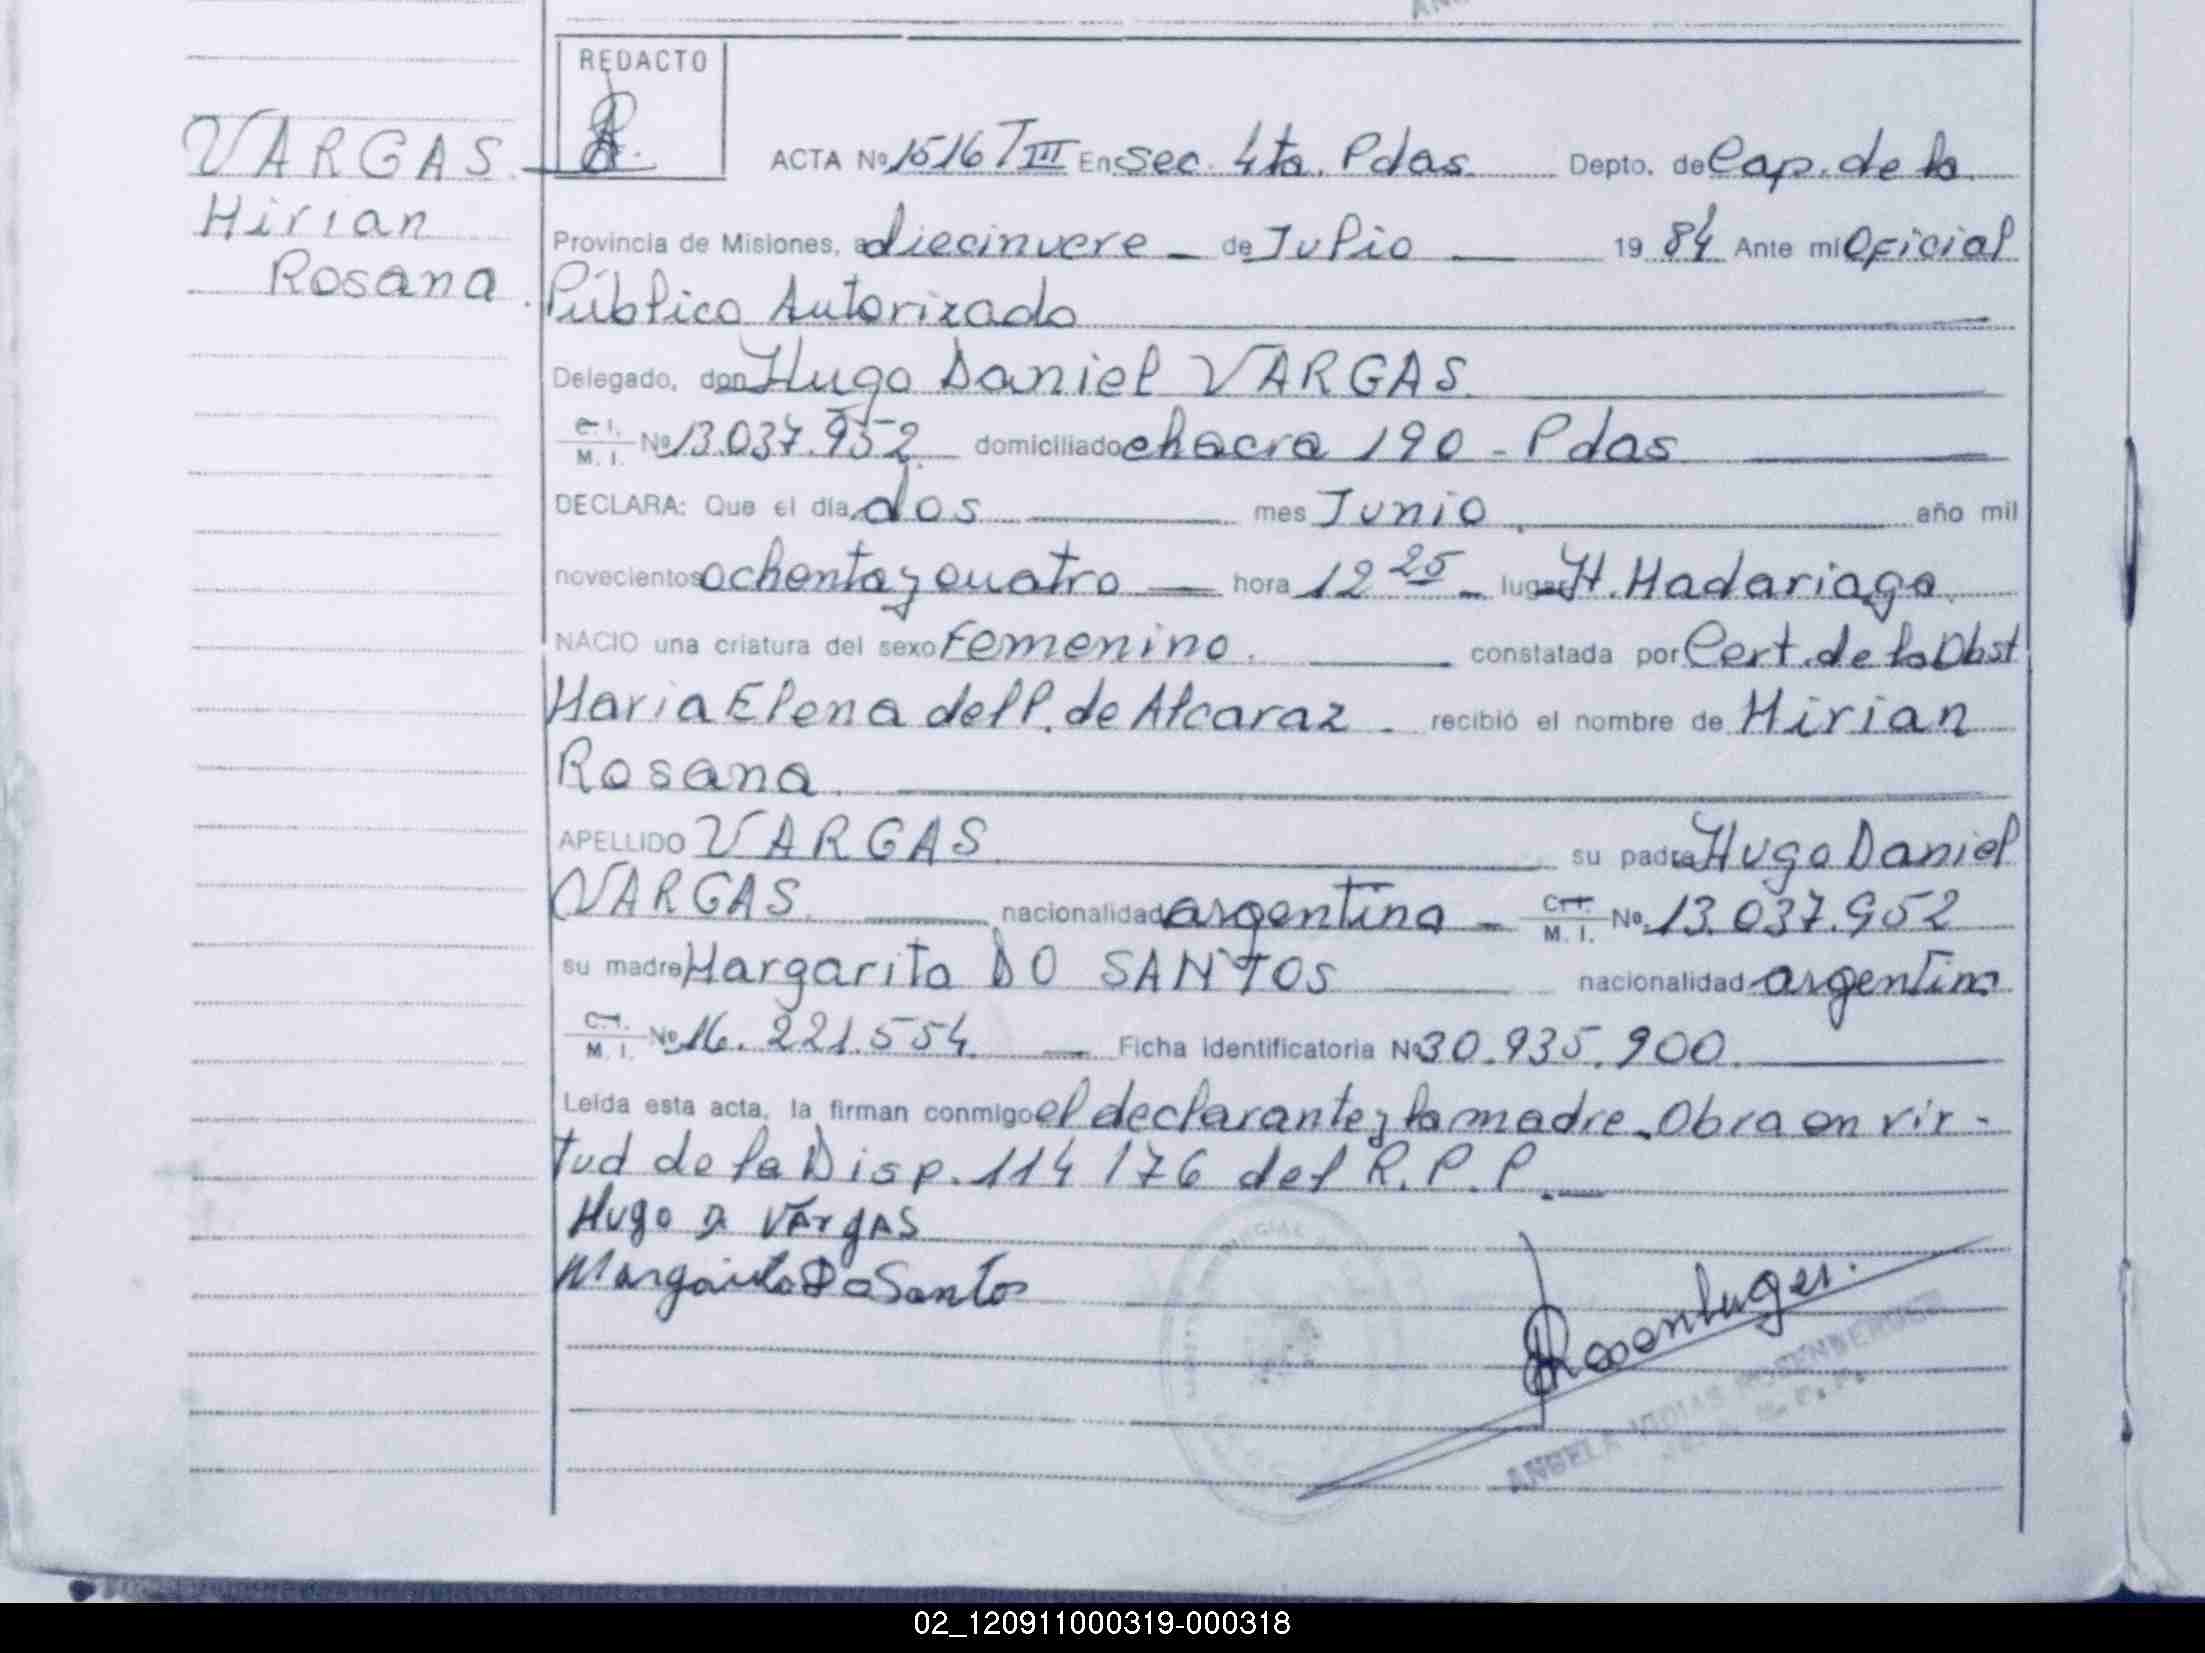 REDACTO
VARGAS
Hirian
Rosana
ACTA Nº 1516 T III En Sec. 4ta. Pdas. Depto. de Cap. de la
Provincia de Misiones, a diecinueve de Julio 19 84 Ante mi Oficial
Público Autorizado
Delegado, don Hugo Daniel VARGAS.
C. I. / M. I. Nº 13.037.952 domiciliado chacra 190 - Pdas
DECLARA: Que el día dos mes Junio. año mil
novecientos ochenta y cuatro hora 12 25 lugar H. Hadariaga.
NACIO una criatura del sexo Femenino. constatada por Cert. de la Obst
Haria Elena del P. de Alcaraz. recibió el nombre de Hirian
Rosana
APELLIDO VARGAS su padre Hugo Daniel
VARGAS. nacionalidad argentina C. I. / M. I. Nº 13.037.952
su madre Hargarita DO SANTOS nacionalidad argentina
C. I. / M. I. Nº 16.221.554 Ficha Identificatoria Nº 30.935.900.
Leída esta acta, la firman conmigo el declarante y la madre. Obra en vir-
tud de la Disp. 114/76 del R.P.P.
Hugo D VArgAS
Margarita Do Santos
ANGELA
02_120911000319-000318